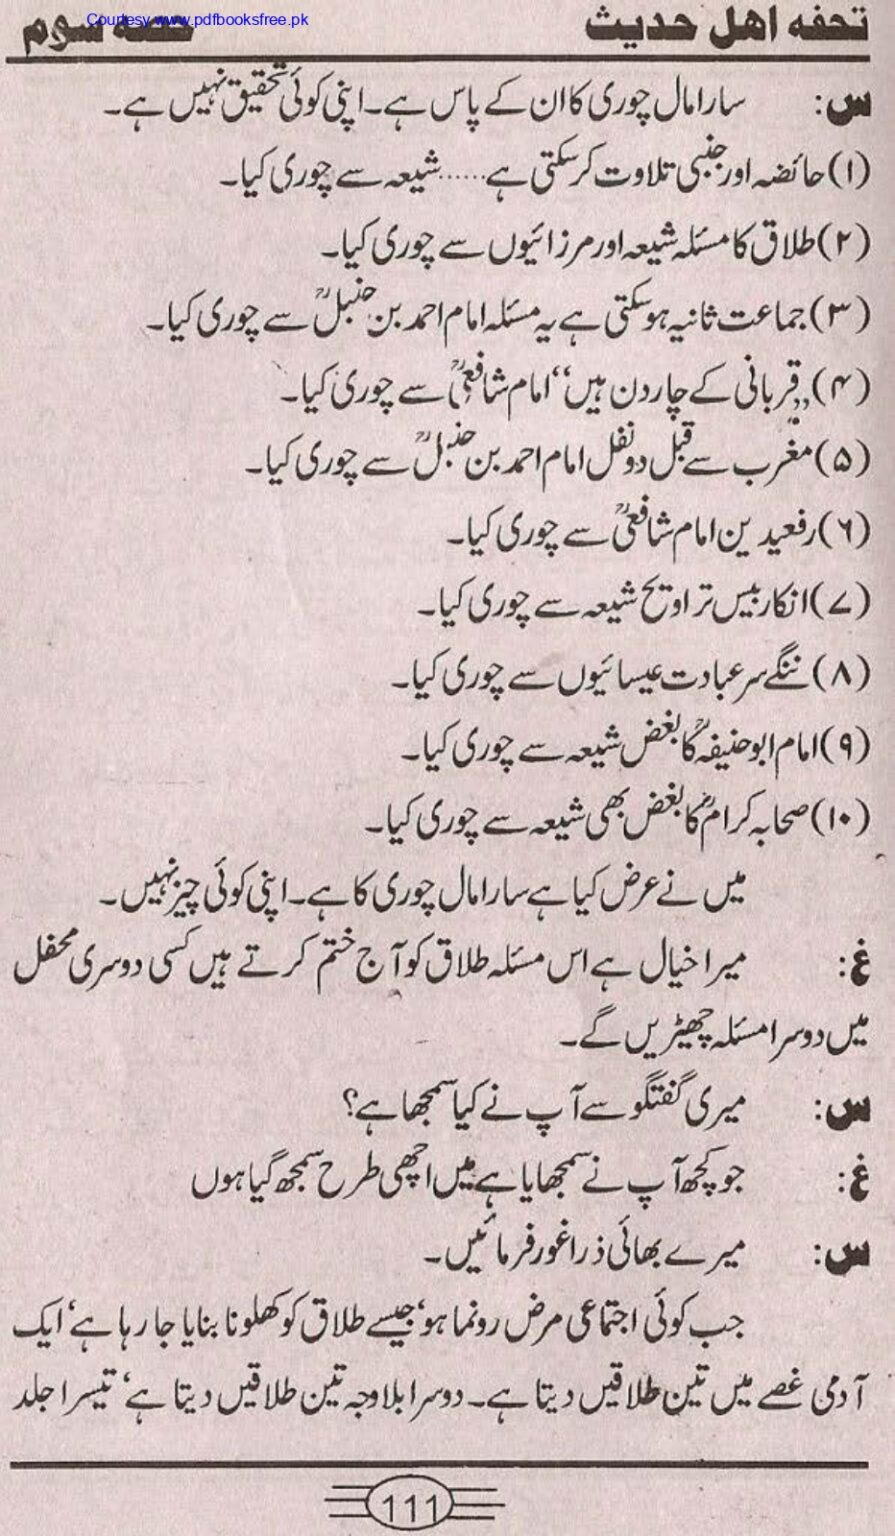 Courtesy www.pdfbooksfree.pk
تحفه اهل حدیث حصه سوم
س: سارا مال چوری کا ان کے پاس ہے۔ اپنی کوئی تحقیق نہیں ہے۔
(۱) حائضہ اور جنبی تلاوت کر سکتی ہے......شیعہ سے چوری کیا۔
(۲) طلاق کا مسئلہ شیعہ اور مرزائیوں سے چوری کیا۔
(۳) جماعت ثانیہ ہو سکتی ہے یہ مسئلہ امام احمد بن حنبلؒ سے چوری کیا۔
(۴) ”قربانی کے چار دن ہیں“ امام شافعیؒ سے چوری کیا۔
(۵) مغرب سے قبل دو نفل امام احمد بن حنبلؒ سے چوری کیا۔
(۶) رفعیدین امام شافعیؒ سے چوری کیا۔
(۷) انکار بیس تراویح شیعہ سے چوری کیا۔
(۸) ننگے سر عبادت عیسائیوں سے چوری کیا۔
(۹) امام ابو حنیفہؒ کا بغض شیعہ سے چوری کیا۔
(۱۰) صحابہ کرامؓ کا بغض بھی شیعہ سے چوری کیا۔
میں نے عرض کیا ہے سارا مال چوری کا ہے۔ اپنی کوئی چیز نہیں۔
غ: میرا خیال ہے اس مسئلہ طلاق کو آج ختم کرتے ہیں کسی دوسری محفل
میں دوسرا مسئلہ چھیڑیں گے۔
س: میری گفتگو سے آپ نے کیا سمجھا ہے؟
غ: جو کچھ آپ نے سمجھایا ہے میں اچھی طرح سمجھ گیا ہوں
س: میرے بھائی ذرا غور فرمائیں۔
جب کوئی اجتماعی مرض رونما ہو، جیسے طلاق کو کھلونا بنایا جا رہا ہے، ایک
آدمی غصے میں تین طلاقیں دیتا ہے۔ دوسرا بلا وجہ تین طلاقیں دیتا ہے، تیسرا جلد
111